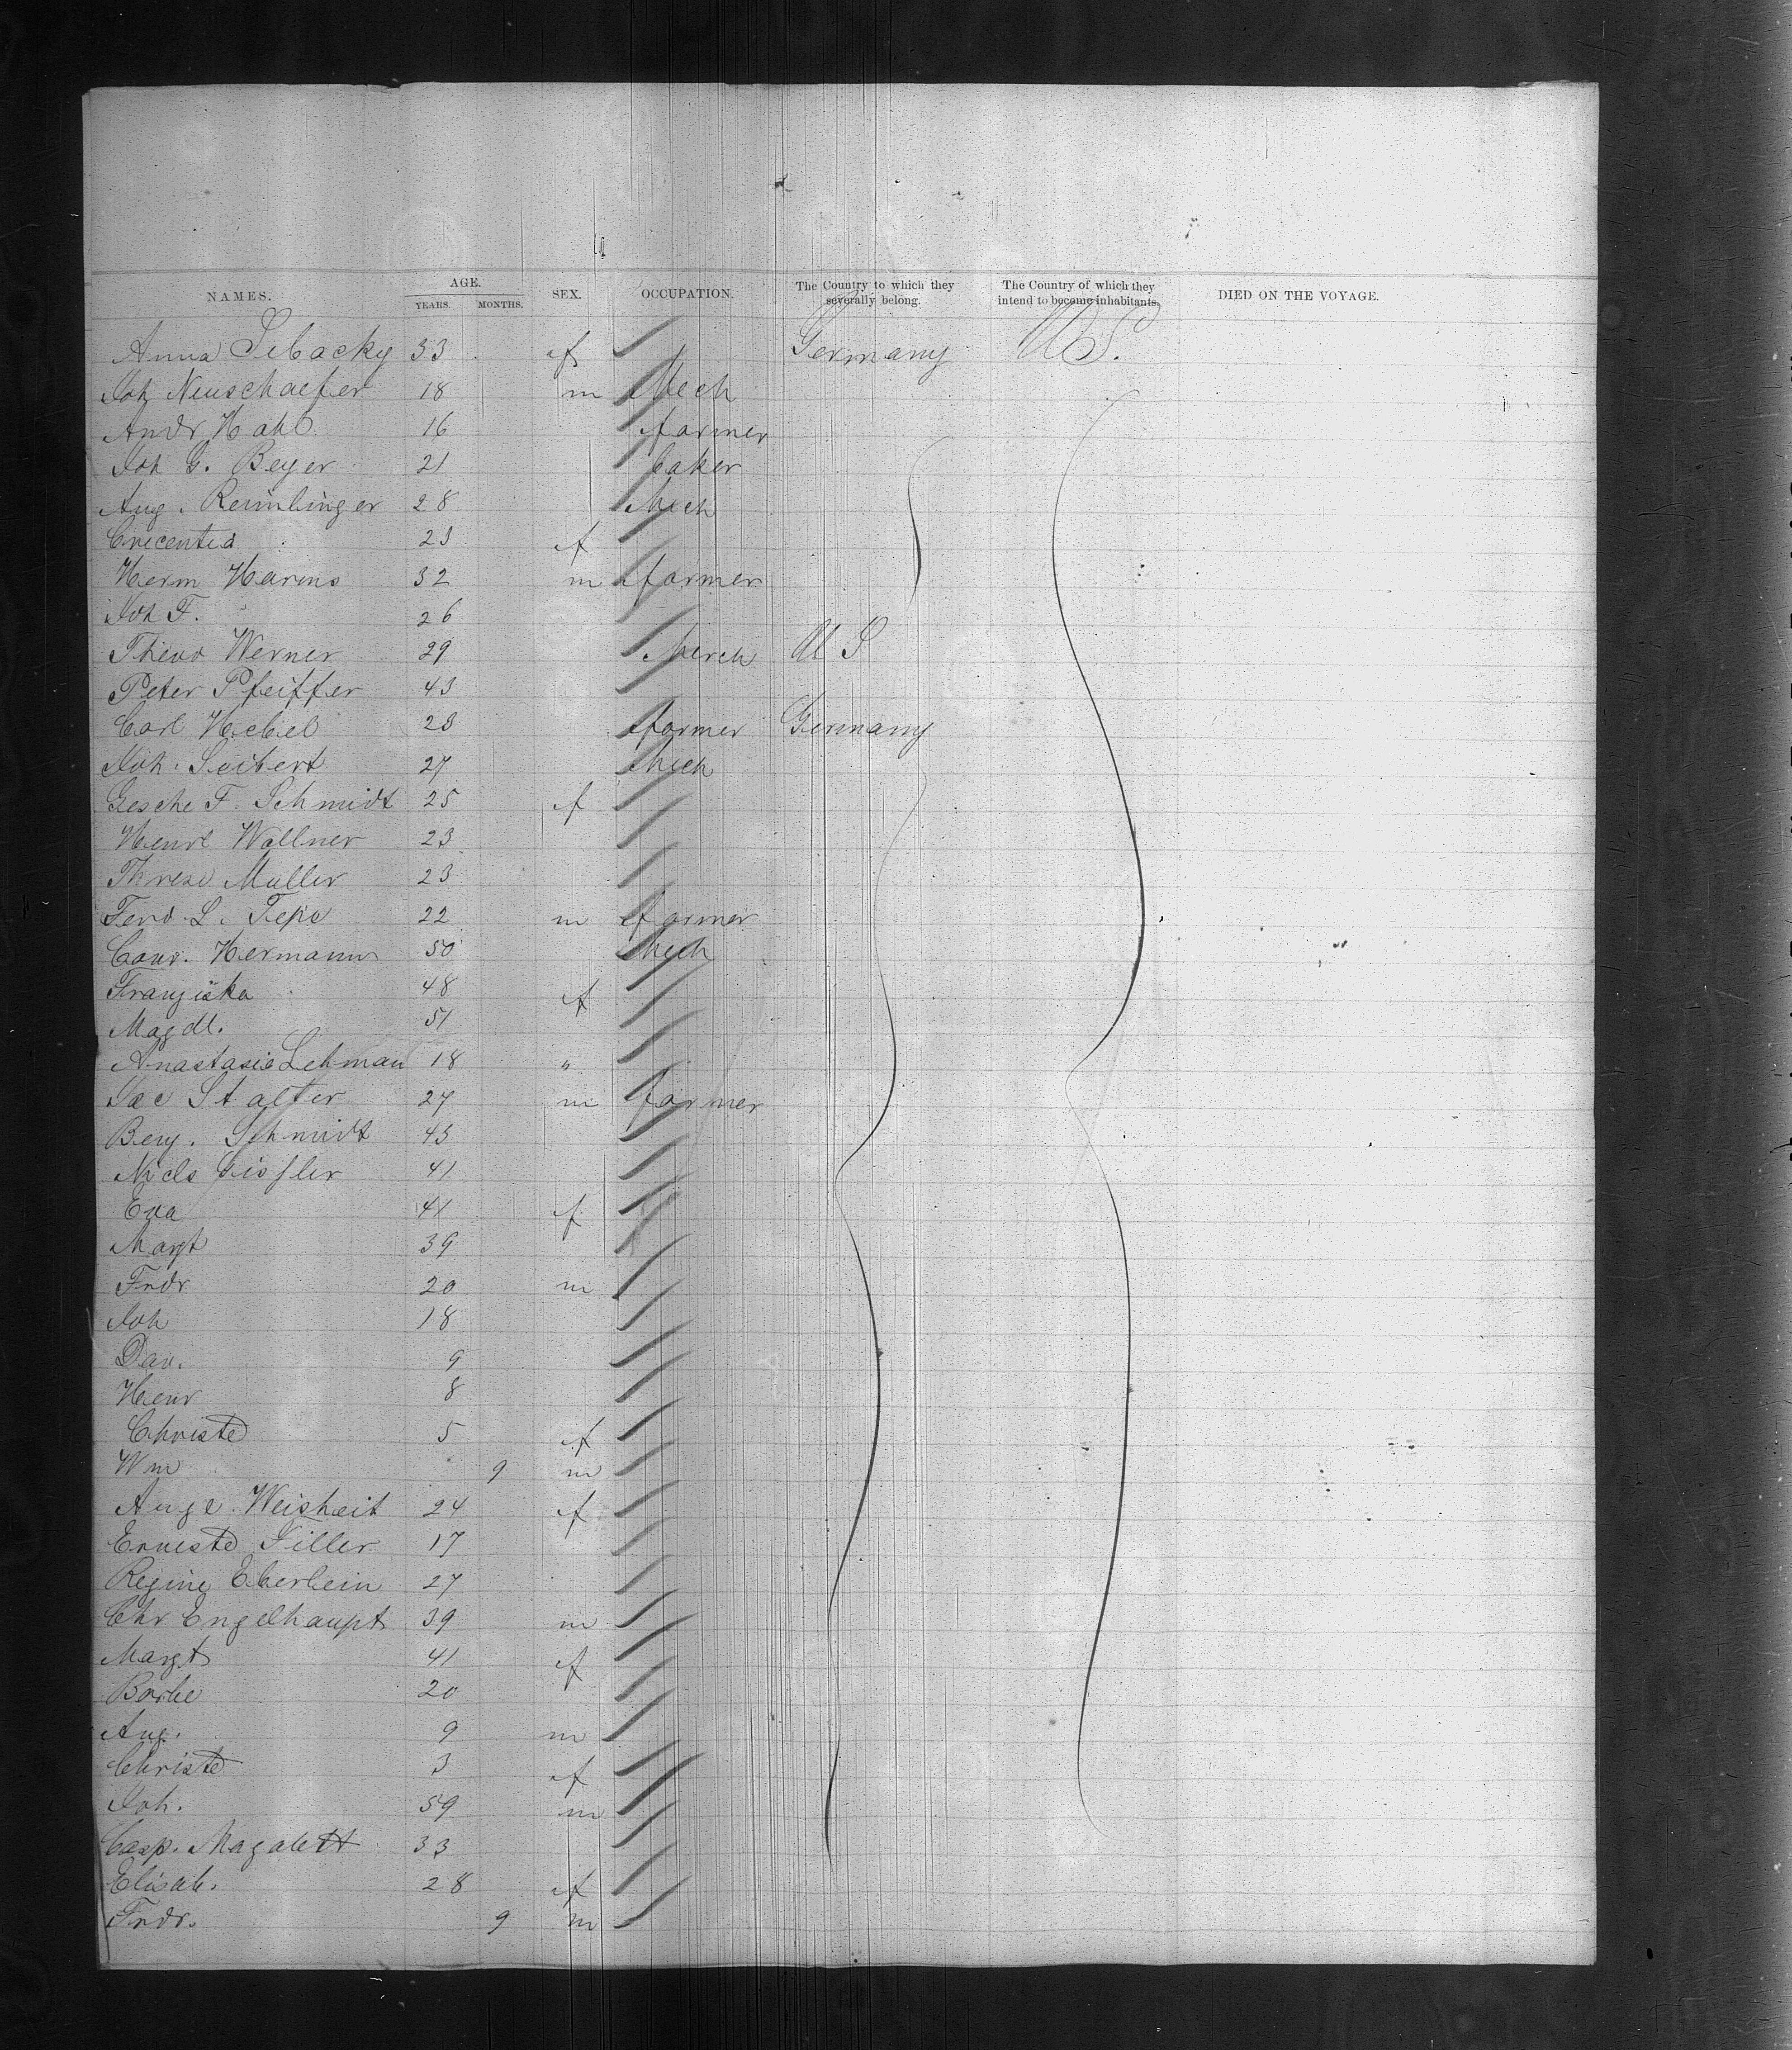 NAMES. AGE. YEARS. MONTHS. SEX. OCCUPATION. The Country to which they severally belong. The Country of which they intend to become inhabitants. DIED ON THE VOYAGE.
Anna Sebacky 33 f Germany U S.
Joh Neuschaefer 18 m Mech
Andr Hahl 16 farmer
Joh G. Beyer 21 baker
Aug. Remlinger 28 Mech
Crecentia 23 f
Herm Harms 32 m farmer
Joh F. 26
Theod Werner 29 Merch U S
Peter Pfeiffer 43
Carl Hebel 23 farmer Germany
Joh. Seibert 27 Mech
Gesche F. Schmidt 25 f
Henrl Wollner 23
Threse Muller 23
Ferd. L. Teke 22 m farmer
Conr. Hermann 50 Mech
Franziska 48 f
Magdl. 51
Anastasia Lehman 18 "
Jac Stalter 27 m farmer
Benj. Schmidt 43
Nicls Geissler 41
Eva 41 f
Margt 39
Frdr 20 m
Joh 18
Dav. 9
Henr 8
Christe 5 f
Wm 9 m
Auge Weisheit 24 f
Erneste Filler 17
Regine Eberlein 27
Chr Engelhaupt 39 m
Margt 41 f
Barbe 20
Aug. 9 m
Christe 3 f
Joh. 59 m
Casp. Magalett 33
Elisab. 28 f
Frdr. 9 m